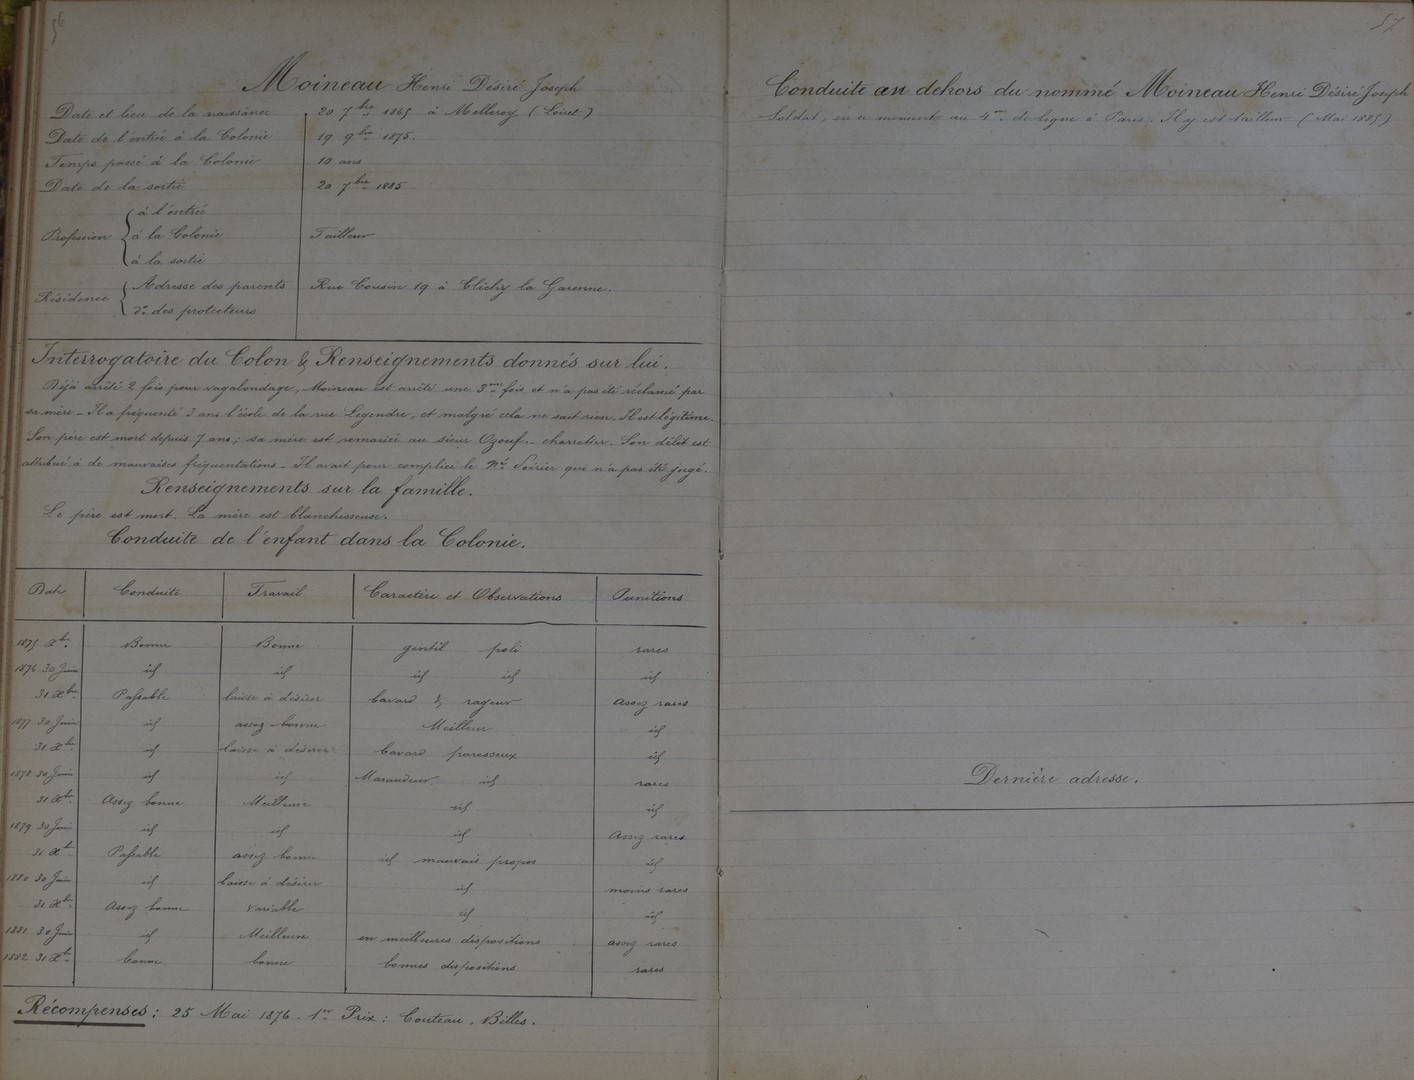 56
Moineau Henri Désiré Joseph
Date et lieu de la naissance 20 7bre 1865 à Melleroy (Loiret)
Date de l'entrée à la Colonie 19 9bre 1875.
Temps passé à la Colonie 10 ans
Date de la sortie 20 7bre 1885
Profession { à l'entrée
à la Colonie Tailleur
à la sortie
Résidence { Adresse des parents Rue Cousin 19 à Clichy la Garenne.
do des protecteurs
Interrogatoire du Colon & Renseignements donnés sur lui.
Déjà arrêté 2 fois pour vagabondage, Moineau est arrêté une 3me fois et n'a pas été réclamé par
sa mère - Il a fréquenté 3 ans l'école de la rue Legendre, et malgré cela ne sait rien. Il est légitime.
Son père est mort depuis 7 ans; sa mère est remariée au sieur Ozouf - charretier. Son délit est
attribué à de mauvaises fréquentations - Il avait pour complice le Né Poirier qui n'a pas été jugé.
Renseignements sur la famille.
Le père est mort. La mère est blanchisseuse.
Conduite de l'enfant dans la Colonie.
Date Conduite Travail Caractère et Observations Punitions
1875 Xbre Bonne Bonne gentil poli rares
1876 30 Juin id id id id id
31 Xbre Passable laisse à désirer bavard & rageur Assez rares
1877 30 Juin id assez bonne Meilleur id
31 Xbre id laisse à désirer bavard paresseux id
1878 30 Juin id id Maraudeur id rares
31 Xbre Assez bonne Meilleure id id
1879 30 Juin id id id Assez rares
31 Xbre Passable assez bonne id mauvais propos id
1880 30 Juin id laisse à désirer id moins rares
31 Xbre Assez bonne variable id id
1881 30 Juin id Meilleure en meilleures dispositions assez rares
1882 31 Xbre bonne bonne bonnes dispositions rares
Récompenses: 25 Mai 1876. 1er Prix: Couteau, Billes.
57
Conduite en dehors du nommé Moineau Henri Désiré Joseph
Soldat, en ce moment au 4me de ligne à Paris. Il y est tailleur (Mai 1885)
Dernière adresse.